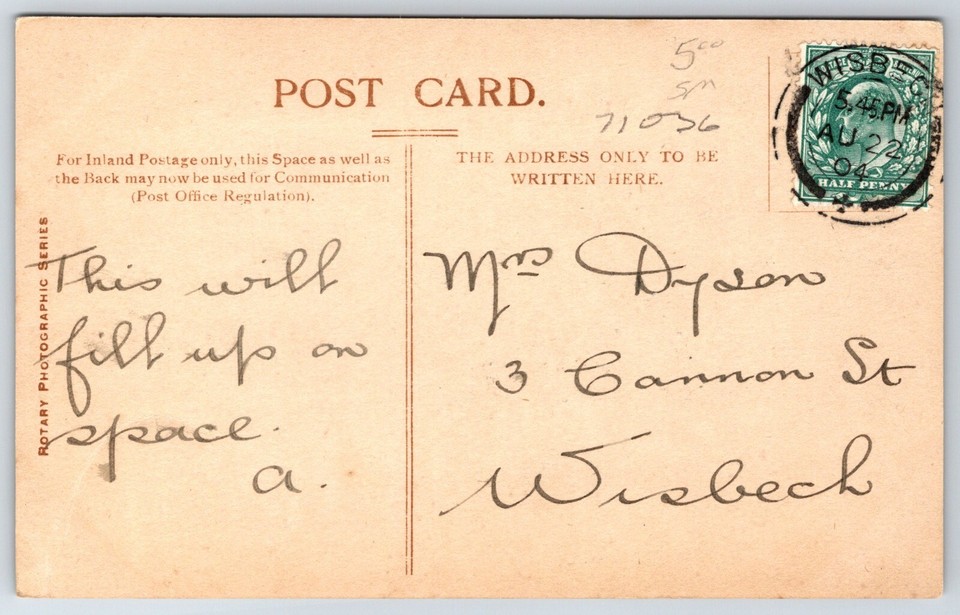 POST CARD.
5 00
sm
71036
For Inland Postage only, this Space as well as
the Back may now be used for Communication
(Post Office Regulation).
THE ADDRESS ONLY TO BE
WRITTEN HERE.
WISBECH
5.45PM
AU 22
04
HALF PENNY
ROTARY PHOTOGRAPHIC SERIES
This will
fill up on
space.
a.
Mrs Dyson
3 Cannon St
Wisbech